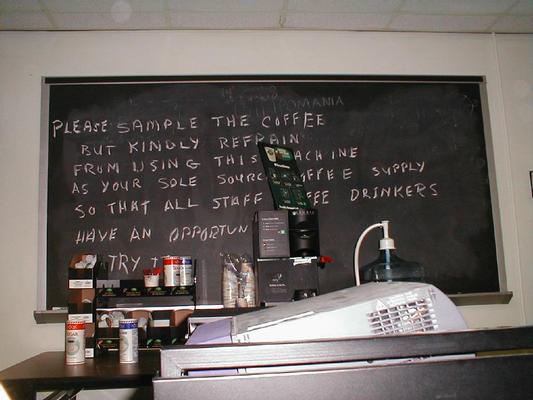 ROMANIA
PLEASE SAMPLE THE COFFEE
BUT KINDLY REFRAIN
FROM USING THIS MACHINE
AS YOUR SOLE SOURC OFFEE SUPPLY
SO THAT ALL STAFF FFEE DRINKERS
HAVE AN OPPORTUN
TRY